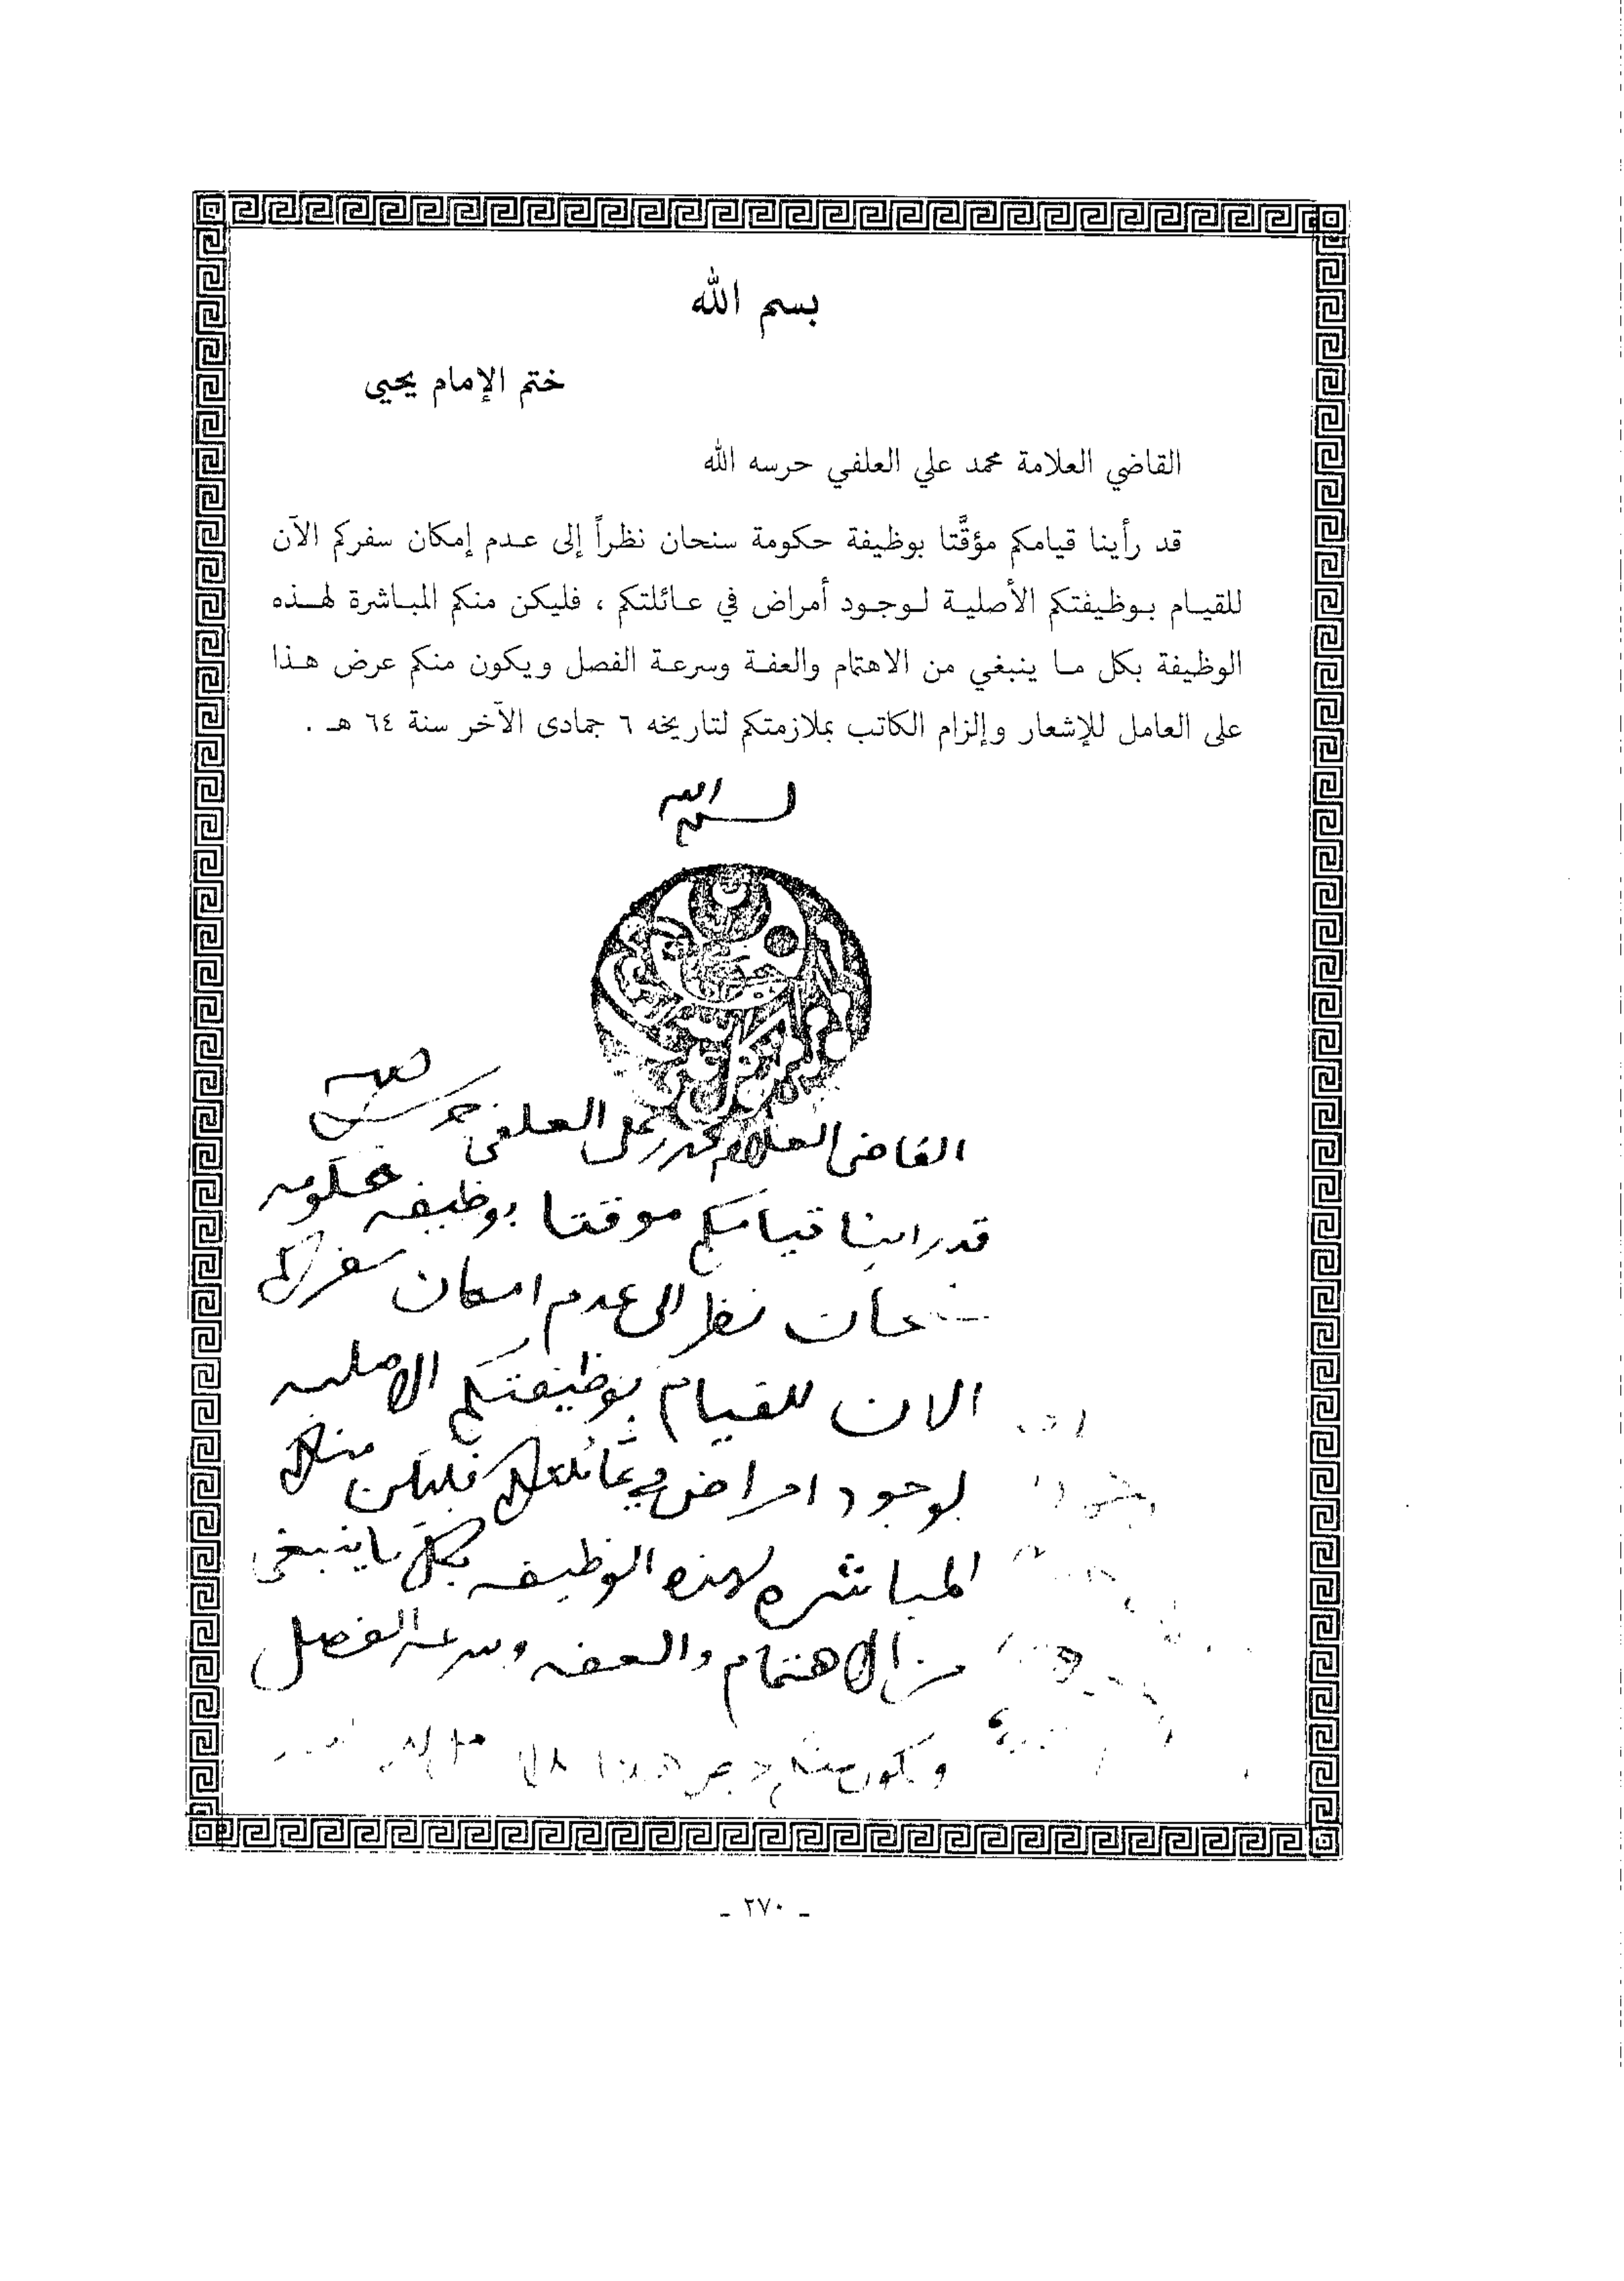 بسم الله
ختم الإمام يحيى
القاضي العلامة محمد علي العلفي حرسه الله
قد رأينا قيامكم مؤقَّتا بوظيفة حكومة سنحان نظراً إلى عدم إمكان سفركم الآن
للقيام بوظيفتكم الأصلية لوجود أمراض في عائلتكم ، فليكن منكم المباشرة لهذه
الوظيفة بكل ما ينبغي من الاهتمام والعفة وسرعة الفصل ويكون منكم عرض هذا
على العامل للإشعار وإلزام الكاتب بملازمتكم لتاريخه ٦ جمادى الآخر سنة ٦٤ هـ .
بسم الله
القاضي العلامه محمد علي العلفي حرسه الله
قد راينا قيامكم موقتا بوظيفه حكومه
سنحان نظرا الى عدم امكان سفركم
الان للقيام بوظيفتكم الاصليه
لوجود امراض في عائلتكم فليكن منكم
المباشره لهذه الوظيفه بكل ما ينبغي
من الاهتمام والعفه وسرعه الفصل
ويكون منكم عرض هذا
ـ ٢٧٠ ـ